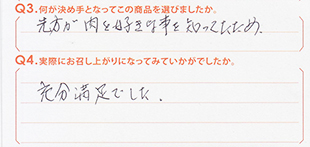 Q3.何が決め手となってこの商品を選びましたか。
先方が肉を好きな事を知ってたため.
Q4.実際にお召し上がりになってみていかがでしたか。
充分満足でした.